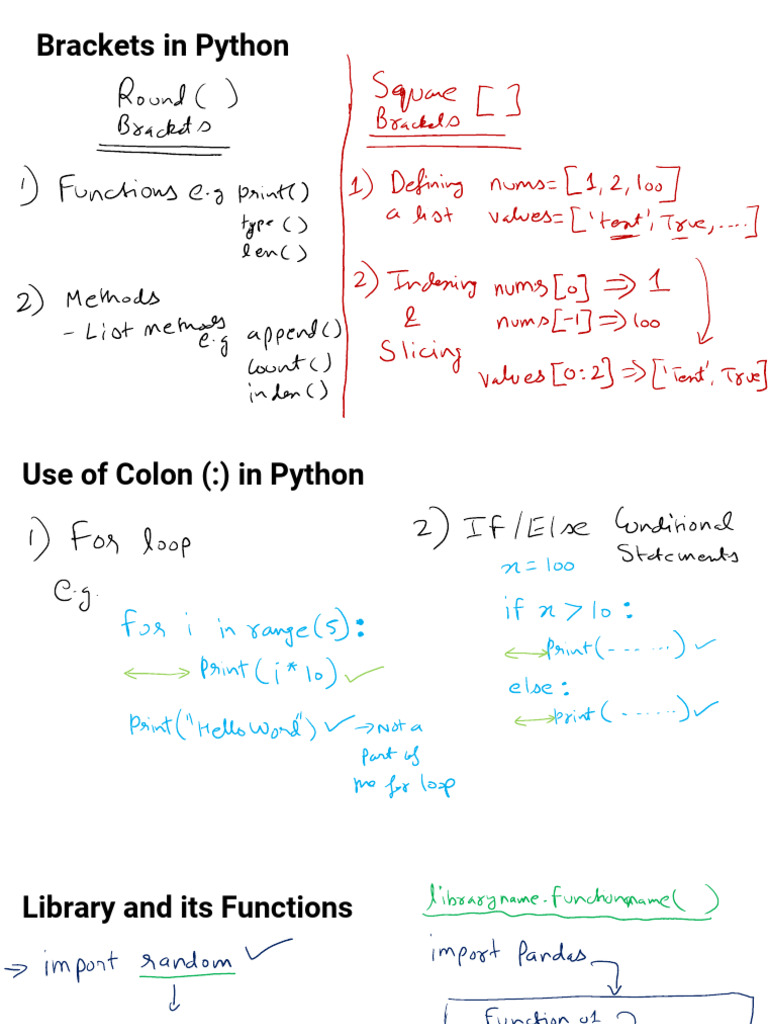 Brackets in Python
Round ( )
Brackets
1) Functions e.g print()
type ()
len()
2) Methods
- List methods
e.g append()
count()
index()
Square [ ]
Brackets
1) Defining nums=[1, 2, 100]
a list values=['Text', True, ....]
2) Indexing nums[0] => 1
& nums[-1] => 100
Slicing
values[0:2] => ['Text', True]
Use of Colon (:) in Python
1) For loop
e.g.
for i in range(5):
print(i*10) ✓
print("Hello Word") ✓ → Not a
part of
the for loop
2) If/Else Conditional
Statements
x = 100
if x > 10 :
print(- - - ....) ✓
else:
print(- .....) ✓
Library and its Functions
→ import random ✓
↓
libraryname.functionname( )
import Pandas
Function 01